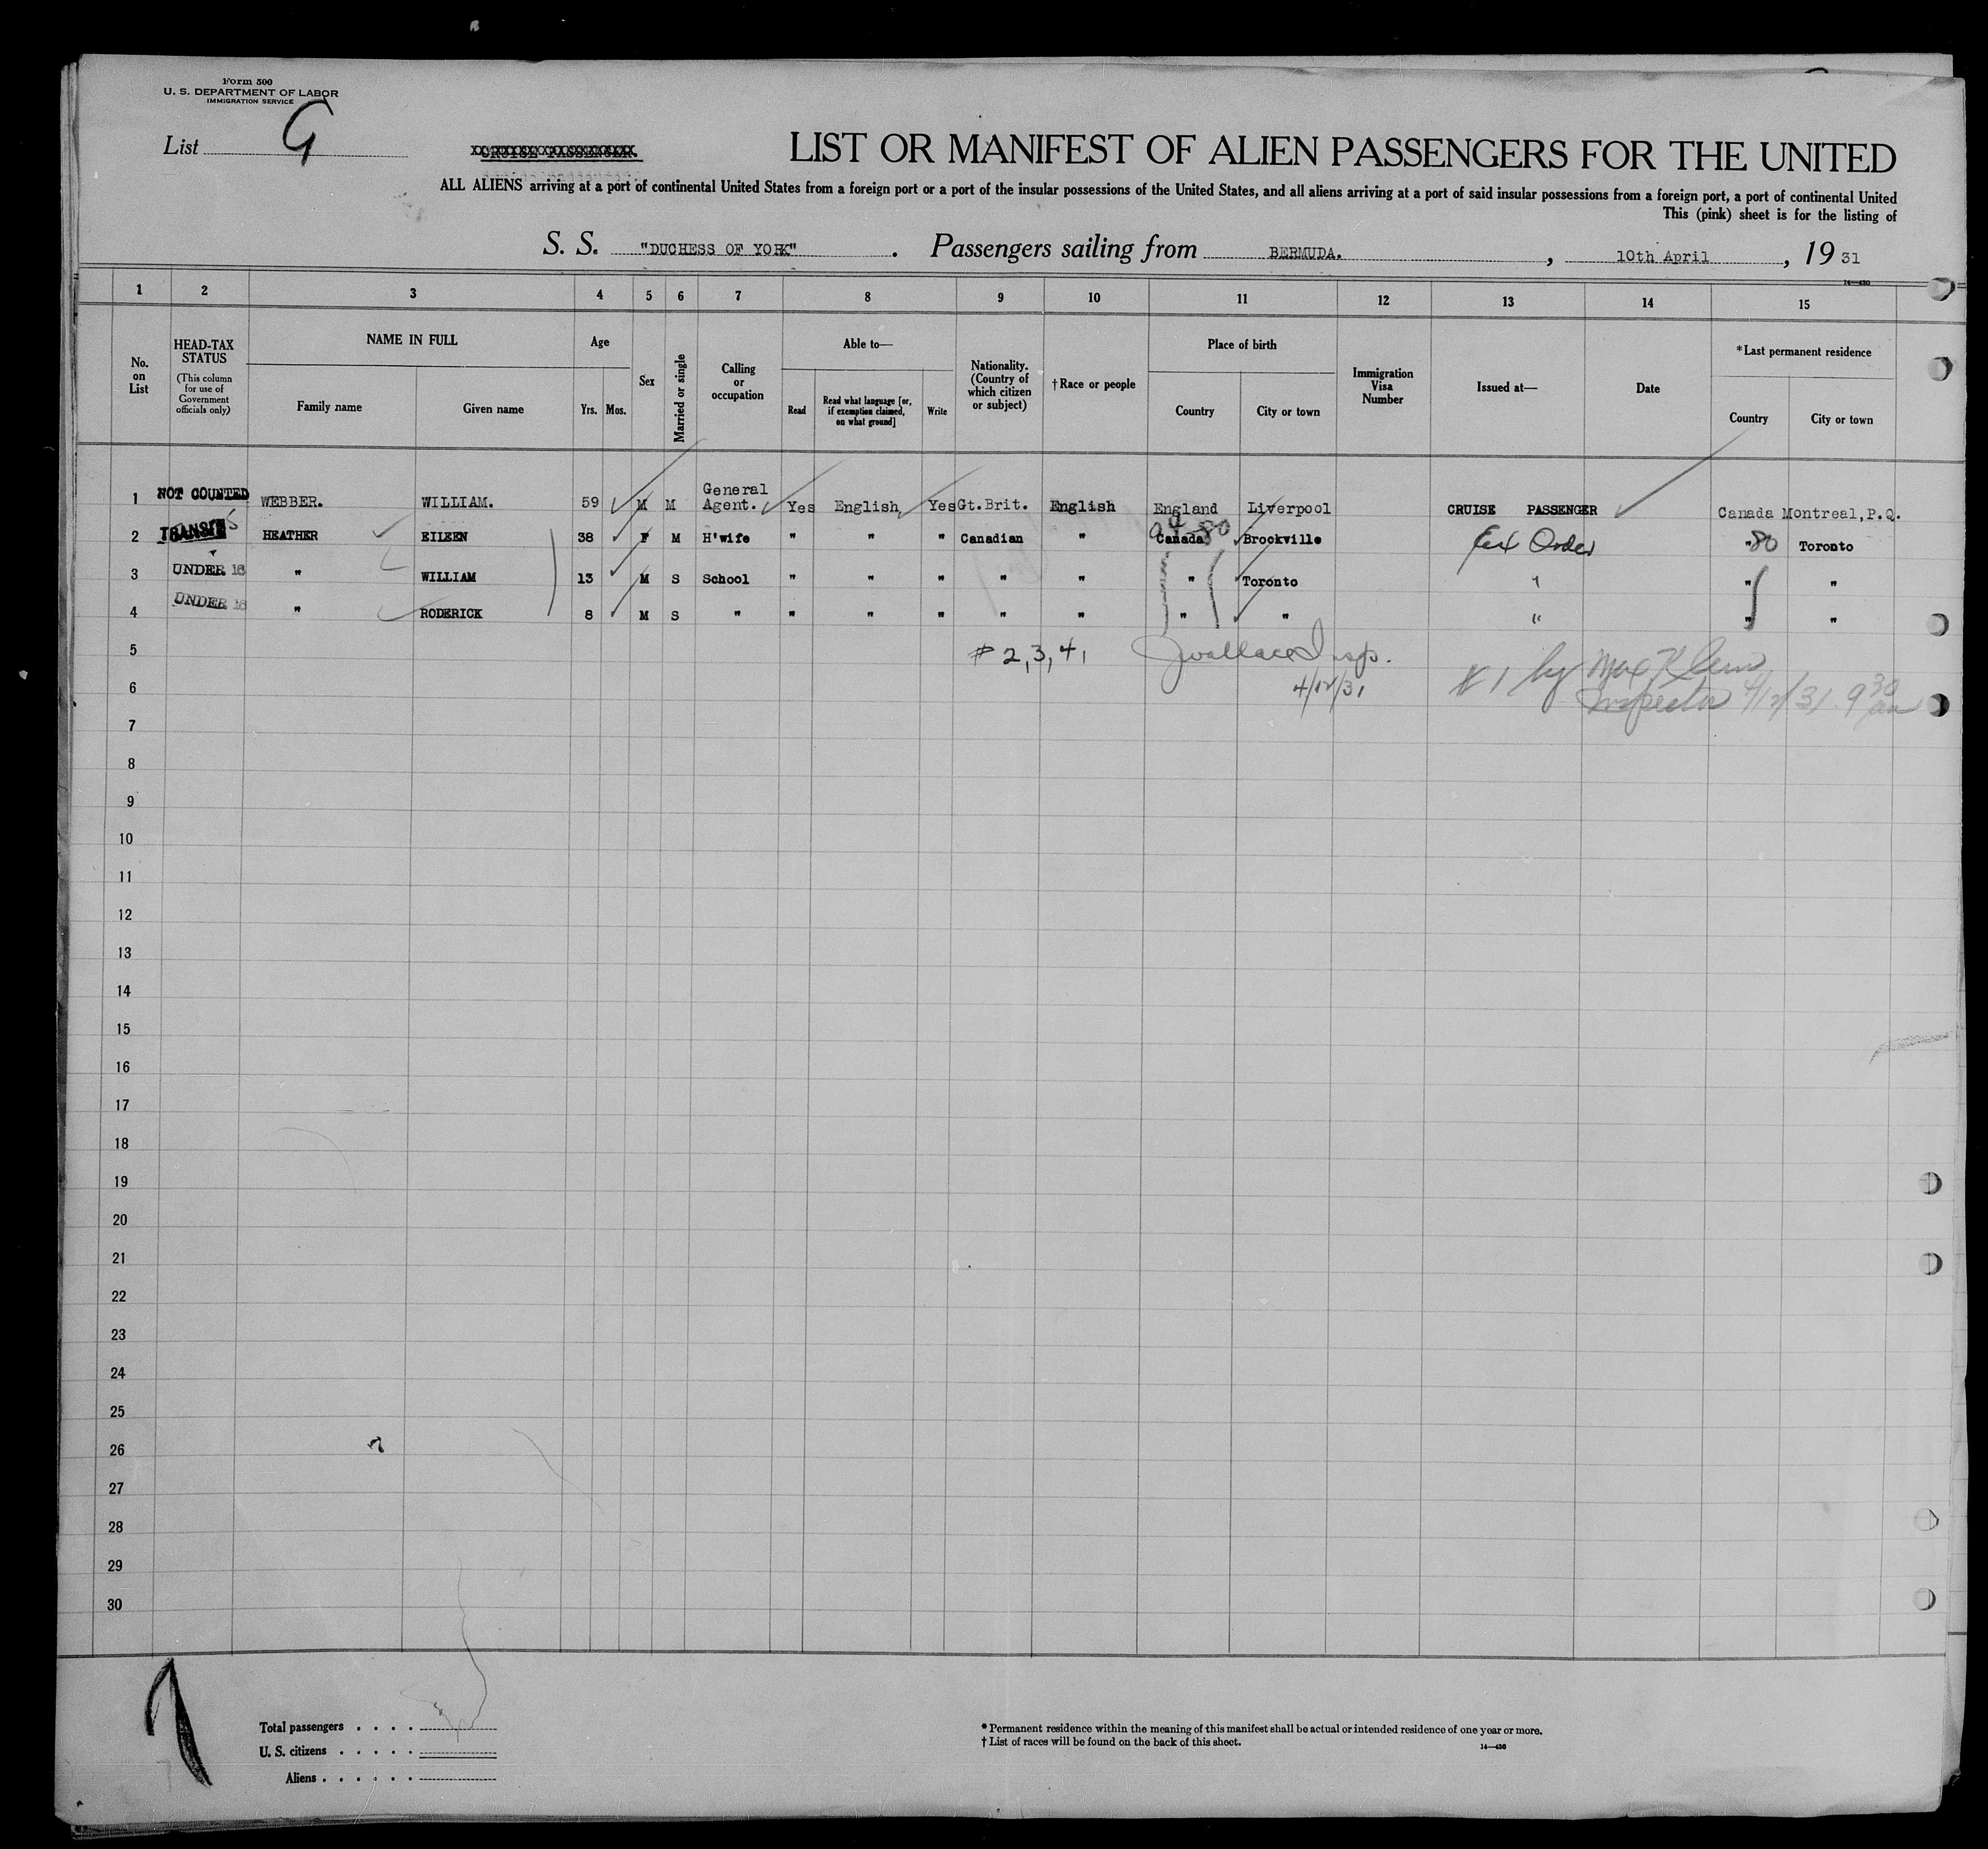 Form 500
U. S. DEPARTMENT OF LABOR
IMMIGRATION SERVICE
List G
CRUISE PASSENGER.
LIST OR MANIFEST OF ALIEN PASSENGERS FOR THE UNITED
ALL ALIENS arriving at a port of continental United States from a foreign port or a port of the insular possessions of the United States, and all aliens arriving at a port of said insular possessions from a foreign port, a port of continental United
This (pink) sheet is for the listing of
S. S. "DUCHESS OF YORK" . Passengers sailing from BERMUDA. , 10th April , 19 31
14—430
1 2 3 4 5 6 7 8 9 10 11 12 13 14 15
No. on List
HEAD-TAX STATUS
(This column for use of Government officials only)
NAME IN FULL
Family name Given name
Age
Yrs. Mos.
Sex
Married or single
Calling or occupation
Able to—
Read
Read what language [or, if exemption claimed, on what ground]
Write
Nationality. (Country of which citizen or subject)
†Race or people
Place of birth
Country City or town
Immigration Visa Number
Issued at—
Date
*Last permanent residence
Country City or town
1 NOT COUNTED WEBBER. WILLIAM. 59 M M General Agent. Yes English Yes Gt.Brit. English England Liverpool CRUISE PASSENGER Canada Montreal, P.Q.
2 TRANSIT HEATHER EILEEN 38 F M H'wife " " " Canadian " Canada 80 Brockville Order " 80 Toronto
3 UNDER 16 " WILLIAM 13 M S School " " " " " " Toronto " " "
4 UNDER 16 " RODERICK 8 M S " " " " " " " " " " "
5 # 2, 3, 4, J Wallace Insp.
6 4/12/31 # 1 by Max Klein
Inspector 4/12/31 9 30 am
7
8
9
10
11
12
13
14
15
16
17
18
19
20
21
22
23
24
25
26
27
28
29
30
Total passengers . . . .
U. S. citizens . . . . .
Aliens . . . . . .
* Permanent residence within the meaning of this manifest shall be actual or intended residence of one year or more.
† List of races will be found on the back of this sheet.
14—430